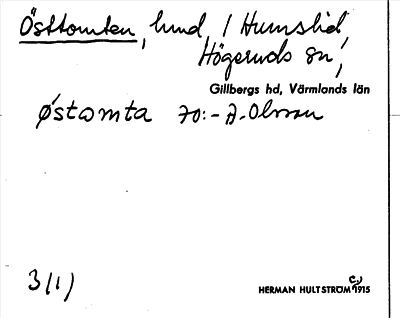 Östtomten, hmd, / Humslid,
Högeruds sn,
Gillbergs hd, Värmlands län
østomta 70:- A. Olsson
3/1)
HERMAN HULTSTRÖM c. 1915